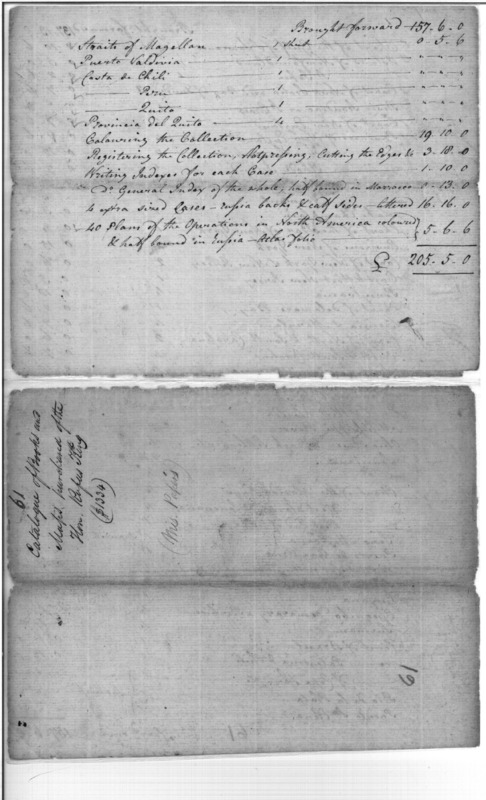 Brought forward 157. 6. 0
Straits of Magellan — 1 Sheet 0. 5. 6
Puerto Valdivia — 1 " " "
Costa de Chili — 1 " " "
— Peru — 1 " " "
— Quito — 1 " " "
Provincia del Quito — 4 " " "
Colouring the Collection — 19. 10. 0
Registering the Collection, Hotpressing, Cutting the Pages &c 3. 18. 0
Writing Indexes for each Case — 1. 10. 0
Do. General Index of the whole, half bound in Morocco 0. 13. 0
4 extra sized Cases — russia backs & calf sides — lettered 16. 16. 0
40 Plans of the Operations in North America coloured } 5. 6. 6
& half bound in russia — Atlas folio
£ 205. 5. 0
61
Catalogue of Books and
Maps, purchased of the
Hon. Rufus King
(£1334)
(Mrs. )
61